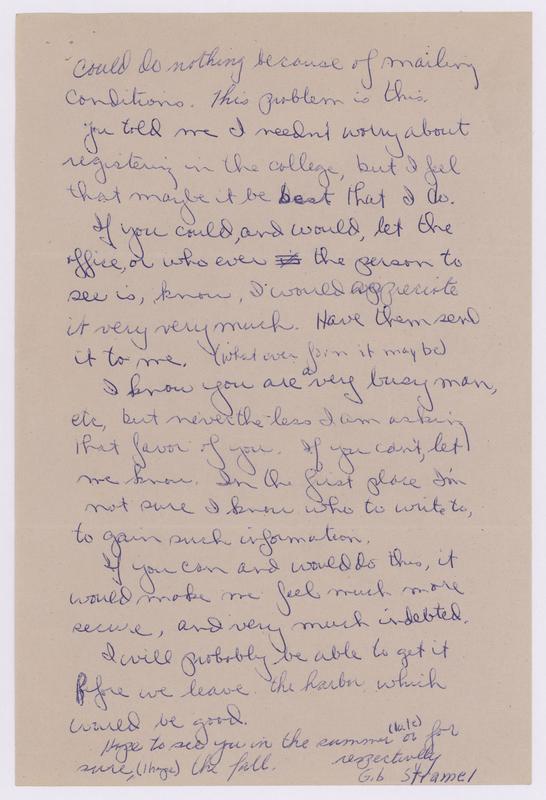 could do nothing because of mailing
conditions. This problem is this.
You told me I needn't worry about
registering in the college, but I feel
that maybe it be best that I do.
If you could, and would, let the
office, or who ever is the person to
see is, know, I would appreciate
it very very much. Have them send
it to me. (what ever form it may be)
I know you are a very busy man,
etc, but nevertheless I am asking
that favor of you. If you can't, let
me know. In the first place I'm
not sure I know who to write to,
to gain such information.
If you can and would do this, it
would make me feel much more
secure, and very much indebted.
I will probably be able to get it
before we leave the harbor which
would be good.
Hope to see you in the summer (late) or for
sure, (I hope) the fall.
respectively
G.b Stramel